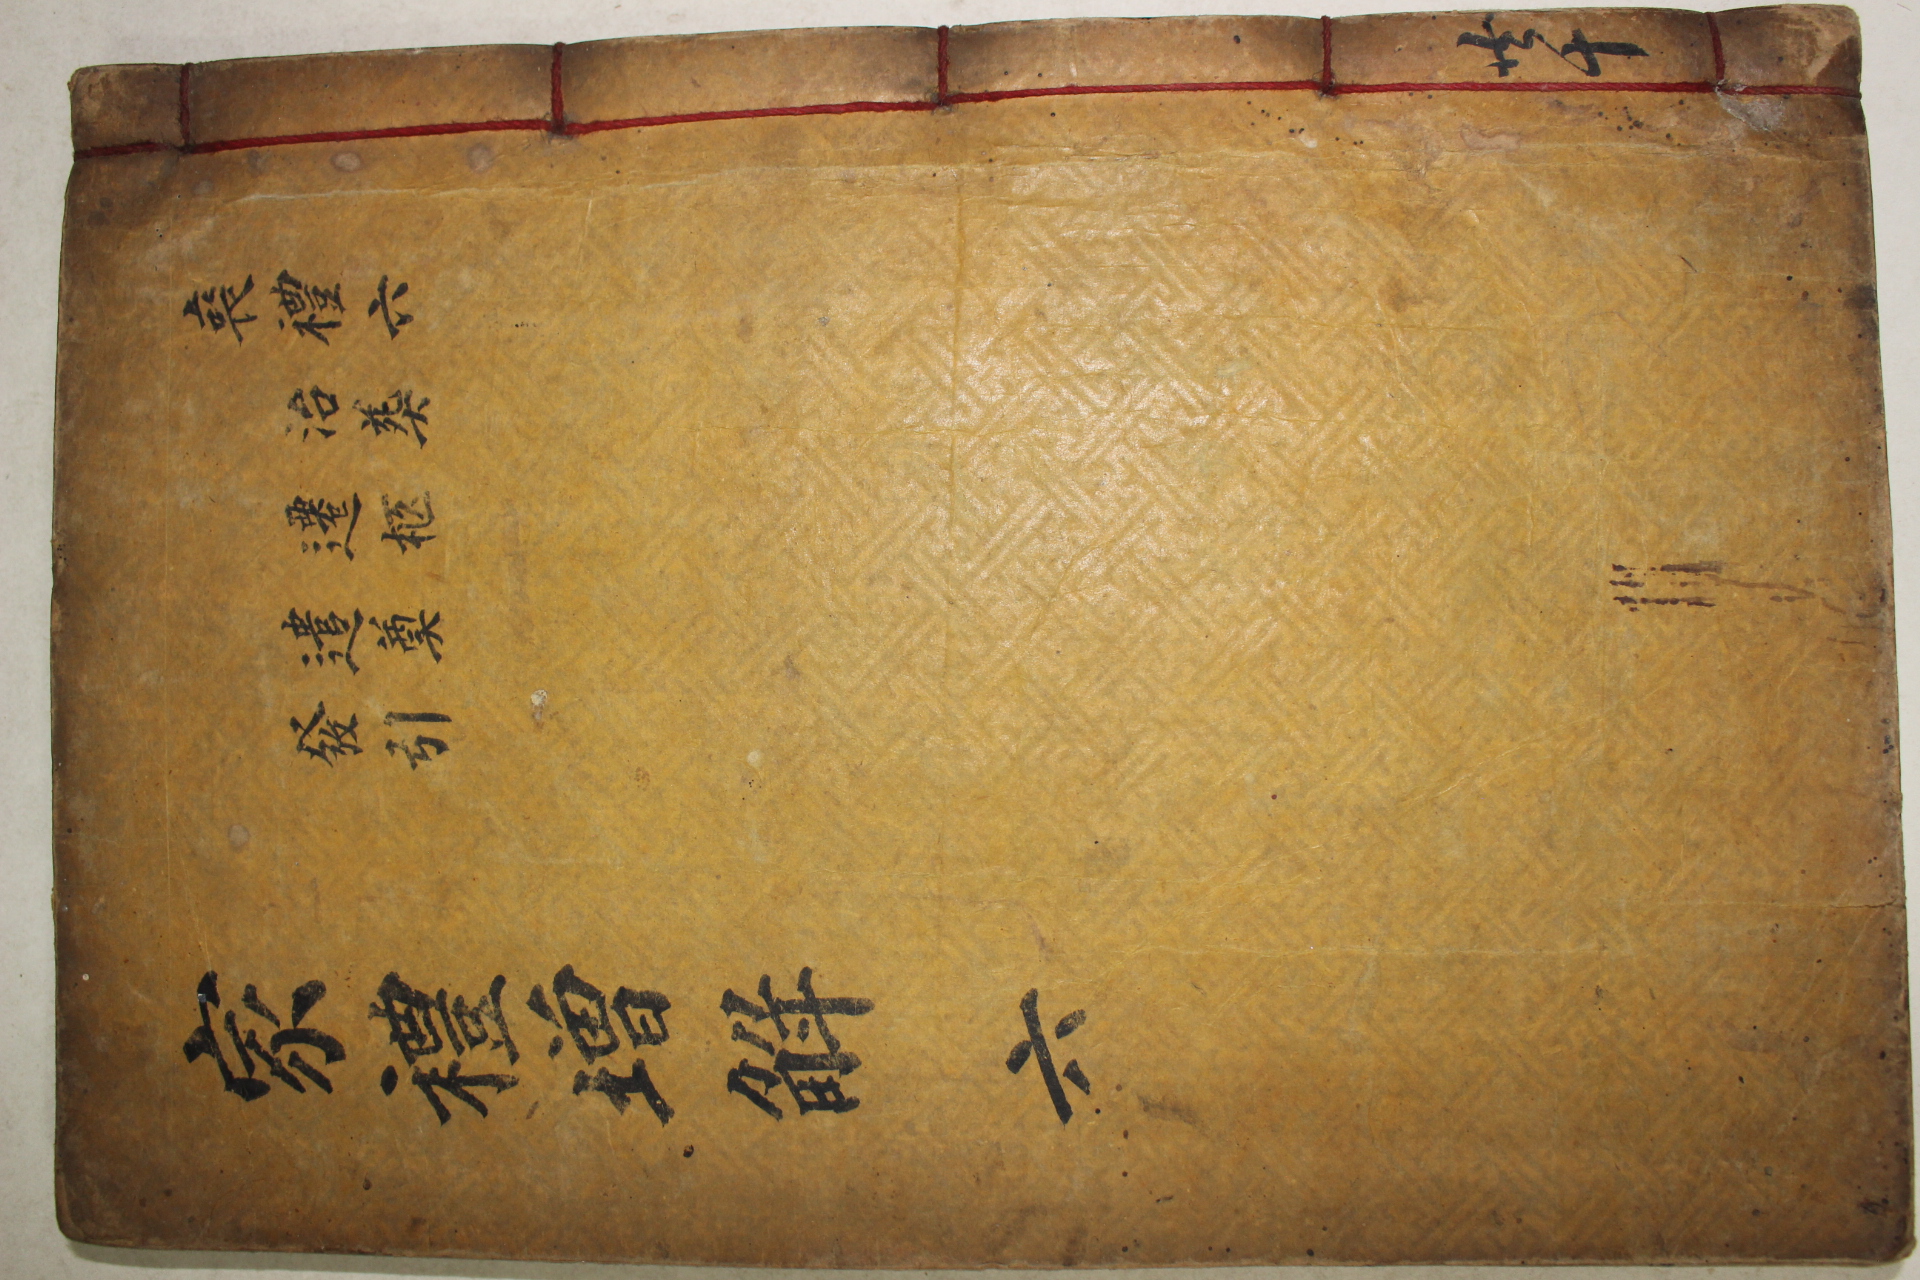 家禮增解 六
喪禮六
治葬
遷柩
遣奠
發引
共十